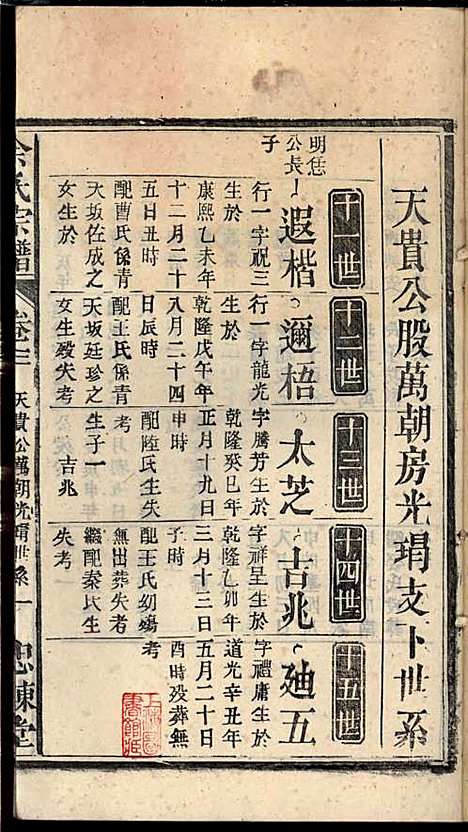 天貴公股萬朝房光瑁支卜世系
十一世
十二世
十三世
十四世
十五世
明恁
公長
子
遐楷
行一字祝三
生於
康熙乙未年
十二月二十
五日丑時
配曹氏係青
大坂佐成之
女生於
邇梧
行一字龍光
生於
乾隆戊午年
八月二十四
日辰時
配王氏係青
大坂廷珍之
女生殁失考
太芝
字騰芳生於
乾隆癸巳年
正月十九日
申時
配陸氏生失
考
生子一
吉兆
吉兆
字祥呈生於
乾隆乙卯年
三月十三日
子時
配王氏幼殤
無出葬失考
繼配秦氏生
失考
廸五
字禮庸生於
道光辛丑年
五月二十日
酉時殁葬無
考
余氏宗譜
卷十一
天貴公萬朝光瑁世系
一
忠諫堂